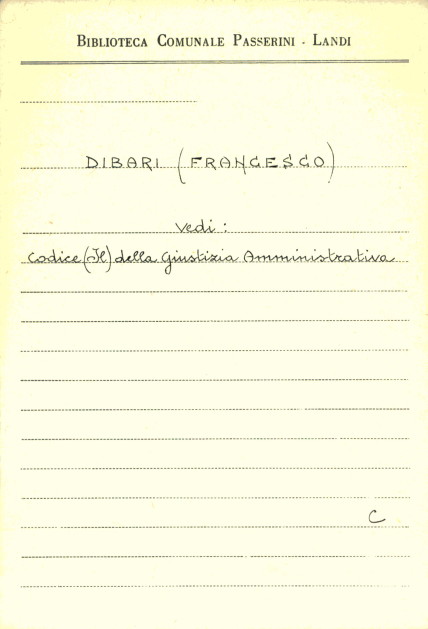 BIBLIOTECA COMUNALE PASSERINI - LANDI
DIBARI (FRANCESCO)
Vedi:
Codice (Il) della Giustizia Amministrativa
C